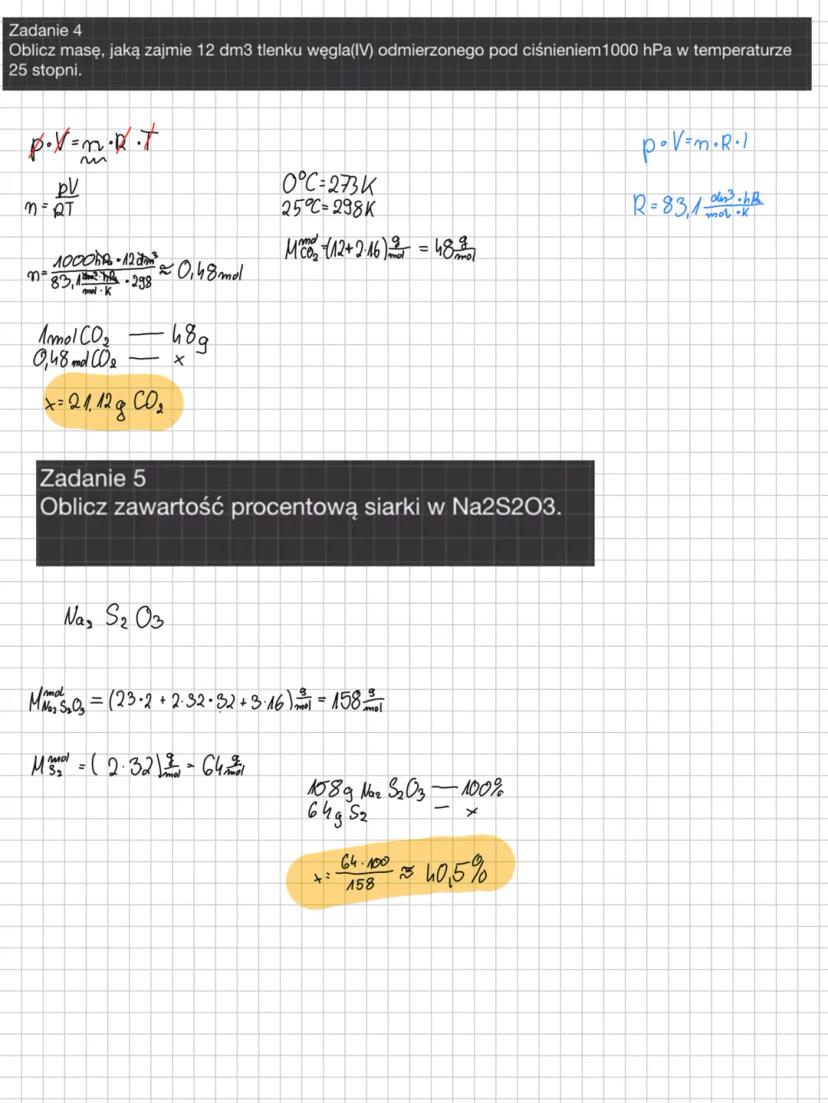 Zadanie 4
Oblicz masę, jaką zajmie 12 dm3 tlenku węgla(IV) odmierzonego pod ciśnieniem1000 hPa w temperaturze
25 stopni.
p·V=n·R·T
p·V=n·R·T
n= pV/RT
0°C=273K
25°C=298K
R=83,1 dm³·hPa/mol·K
M mol CO₂ =(12+2·16) g/mol = 48 g/mol
n= 1000hPa·12dm³/83,1 dm³·hPa/mol·K ·298 ≈ 0,48mol
1mol CO₂ — 48g
0,48 mol CO₂ — x
x=21,12g CO₂
Zadanie 5
Oblicz zawartość procentową siarki w Na2S2O3.
Na₂ S₂ O₃
M mol Na₂S₂O₃ = (23·2 + 2·32·32+3·16) g/mol = 158 g/mol
M mol S₂ = (2·32) g/mol = 64 g/mol
158g Na₂ S₂O₃ — 100%
64g S₂ — x
x= 64·100/158 ≈ 40,5%